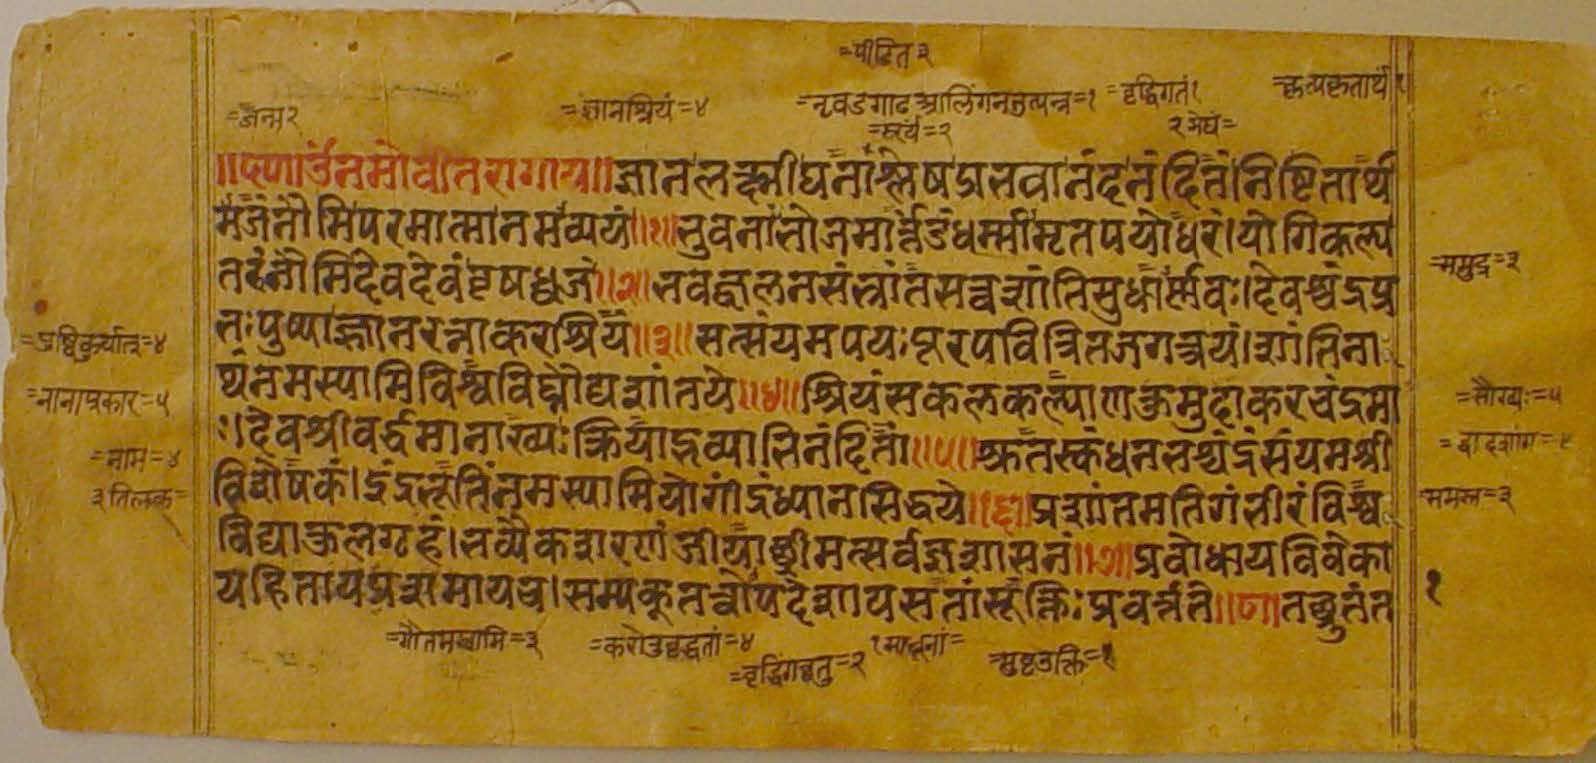 =पीडित३
कृत्यकृतार्थ१
=ज्ञानश्रियं=४
=वृद्धिगतं१
=जन्म२
=सूर्य=२
२मेघं=
॥ए६०॥र्उंनमोवीतरागाय॥ज्ञानलक्ष्मीघनाश्लेषप्रभवानंदनंदितं।निष्टितार्थ
मजंनौमिपरमात्मानमव्ययं॥१॥भुवनांभोजमार्त्तंडंधर्म्मामृतपयोधरं।योगिकल्प
तरुंनौमिदेवदेवंवृषध्वजं॥२॥भवज्वलनसंभ्रांतसत्वशांतिसुधार्णवः।देवश्चंद्रप्र
भःपुष्याज्ज्ञानरत्नाकरश्रियं॥३॥सत्संयमपयःपूरपवित्रितजगत्त्रयं।शांतिना
थंनमस्यामिविश्वविघ्नौघशांतये॥४॥श्रियंसकलकल्याणकुमुदाकरचंद्रमा
ः।देवश्रीवर्द्धमानाख्यःक्रियाद्भव्याभिनंदितां॥५॥श्रुतस्कंधनभश्चंद्रंसंयमश्री
विशेषकं।इंद्रभूतिंनमस्यामियोगींद्रंध्यानसिद्धये॥६॥प्रशांतमतिगंभीरंविश्व
विद्याकुलगृहं।भव्यैकशरणंजीयाच्छ्रीमत्सर्वज्ञशासनं॥७॥प्रबोधायविवेका
यहितायप्रशमायच।सम्यक्तत्वोपदेशायसतांसूक्तिःप्रवर्त्तते॥८॥तच्छ्रुतंत
=समुद्र=३
=पुष्टिकुर्यात्=४
=नानाप्रकार=५
=सौख्यः=५
=नाम=४
=द्वादशांग=४
३तिलक=
समस्त=३
१
=गौतमस्वामि=३
=वृद्धिंगच्छतु=२
=सुष्टउक्ति=१